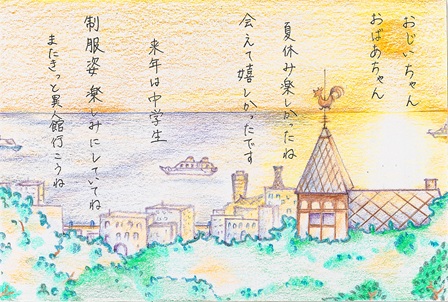 おじいちゃん
おばあちゃん
夏休み楽しかったね
会えて嬉しかったです
来年は中学生
制服姿楽しみにしていてね
またきっと異人館行こうね